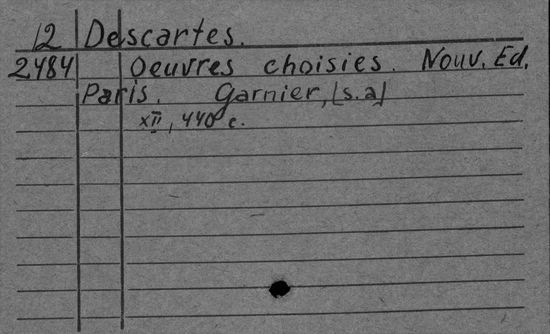 12 Descartes.
2484 Oeuvres choisies. Nouv. Ed.
Paris. Garnier, [s.a]
XII, 440 c.